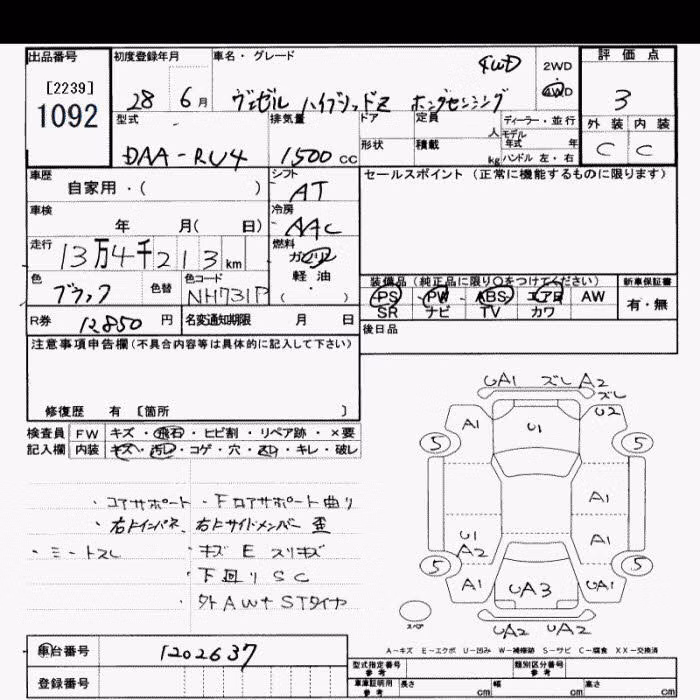 出品番号
[2239]
1092
初度登録年月
28 6月
車名・グレード
4WD
ヴェゼル ハイブリッドZ ホンダセンシング
2WD
4WD
評価点
3
外装 内装
C C
型式
DAA-RU4
排気量
1500 cc
ドア
形状
定員
人
積載
kg
ディーラー・並行
モデル
年式 年
ハンドル 左・右
車歴
自家用・( )
シフト
AT
セールスポイント(正常に機能するものに限ります)
車検
年 月( 日)
冷房
AAC
走行
13万4千213km
燃料
ガソリン
軽油
( ・ )
色
ブラック
色替
色コード
NH731P
装備品(純正品に限り○をつけてください)
PS PW ABS エアB AW
SR ナビ TV カワ
新車保証書
有・無
R券 12850 円
名変通知期限 月 日
後日品
注意事項申告欄(不具合内容等は具体的に記入して下さい)
修復歴 有 [箇所 ]
検査員
記入欄
FW キズ・飛石・ヒビ割・リペア跡・×要
内装 キズ・汚レ・コゲ・穴・スレ・キレ・破レ
・コアサポート・Fロアサポート曲り
・右Fインパネ、右Fサイドメンバー 歪
・シートスレ
・キズ E スリキズ
・下回り SC
・外AW+STタイヤ
UA1 ズレ A2
ズレ
A1 U1 U2
5 5
A1
U1
A2 A1
5 5
A1 UA3 UA1
スペア
UA2 UA2
A-キズ E-エクボ U-凹み W-補修跡 S-サビ C-腐食 XX-交換済
車台番号
1202637
登録番号
型式指定番号
参考
類別区分番号
参考
車庫証明用
参考
長さ cm 幅 cm 高さ cm